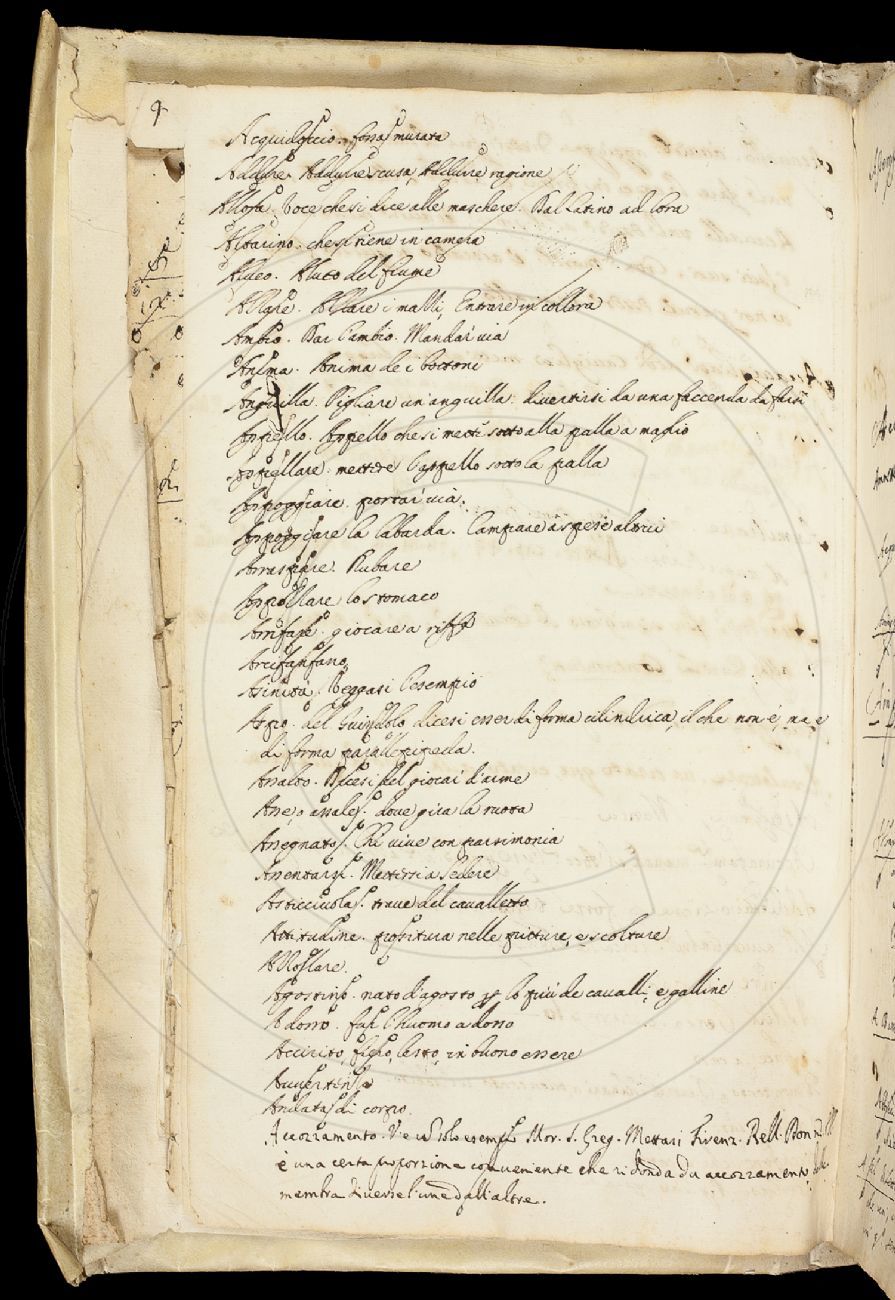 4
Acquidoccio. fossa murata
Addurre. Addurre scusa, Addurre ragione
Allora. Voce che si dice alle maschere. Dal Latino ad Cora
che si tiene in camera
Alveo. Alveo del fiume
Allare. Allare i malli, Entrare in collora
Ambio. Dar l'ambio. Mandar via
Anima. Anima de i bottoni
Anguilla. Pigliare un'anguilla: divertirsi da una faccenda da farsi
Appello. Appello che si mette sotto alla palla a maglio
Appellare. mettere l'appello sotto la palla
Appoggiare. portar via.
Appoggiare la labarda. Campare à spese altrui
Arraspare. Rubare
lo stomaco
Arriffare. giocare a riffa
Arcifanfano
Asinità. Veggasi l'esempio
Aspo. del Guindolo dicesi esser di forma cilindrica, il che non é, ma è
di forma parallelepipeda.
Assalto. Dicesi del giocar d'arme
Asse, o assale. dove gira la ruota
Assegnato. Chi vive con parsimonia
Assentarsi. Mettersi a sedere
Asticciuola. trave del cavalletto
Attitudine. positura nelle pitture, e scolture
Allossare.
Agostino. nato d'agosto lo più de cavalli, e galline
Adosso. fare l'huomo adosso
Accivito, lesto, in buono essere
Avvertenza
Andata di corpo.
Accozzamento. V'e un solo esempio Mor. S. Greg. Mettasi Firenz. Bell. Donn.
è una certa proporzione conveniente che ridonda da accozzamento delle
membra diverse l'una dall'altre.